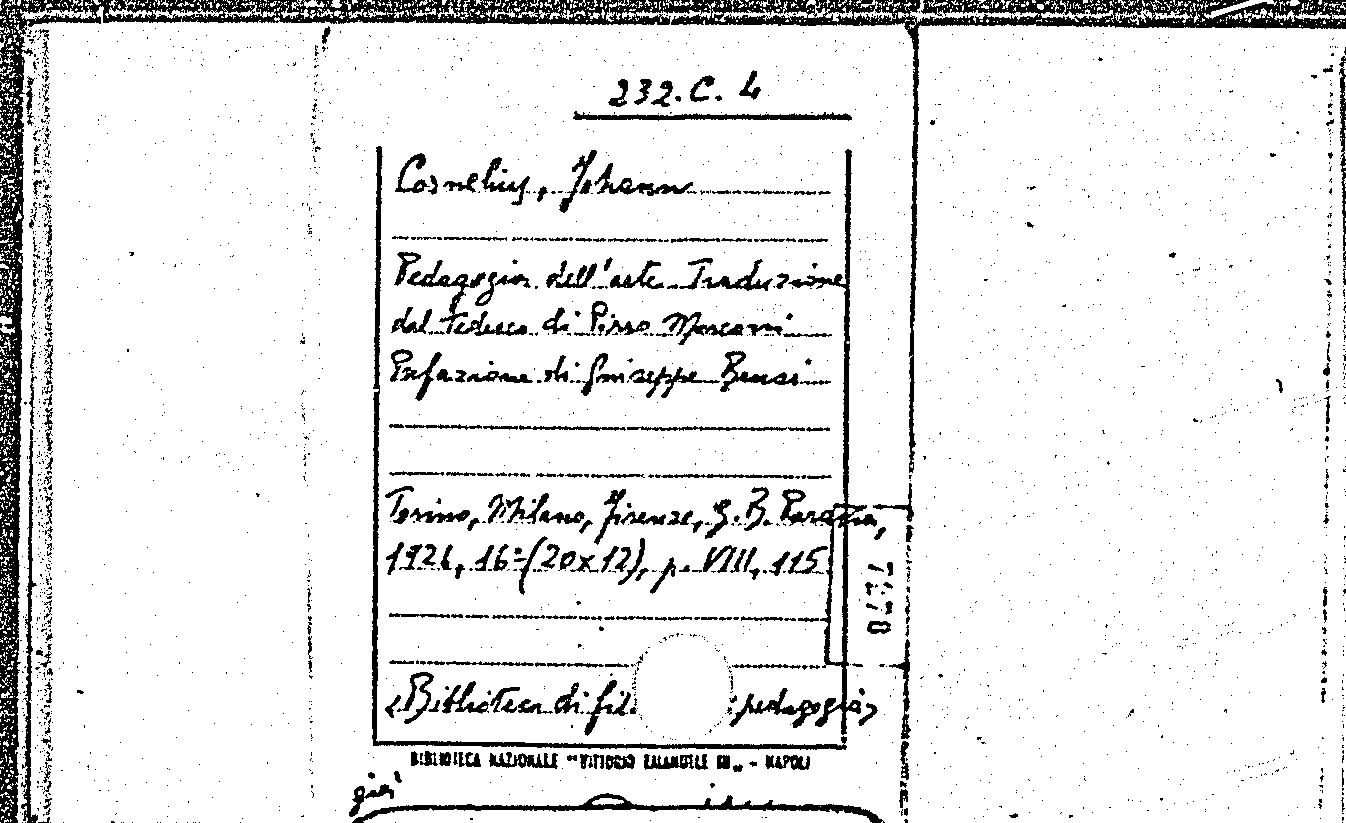 232.C. 4
Cornelius, Johann
Pedagogia dell'arte. Traduzione
dal tedesco di Pirro Marconi
Prefazione di Giuseppe
Torino, Milano, Firenze, G. B. Paravia,
1926, 16º (20x12), p. VIII, 115
7670
<Biblioteca di fil. pedagogia>
BIBLIOTECA NAZIONALE "VITTORIO EMANUELE III" - NAPOLI